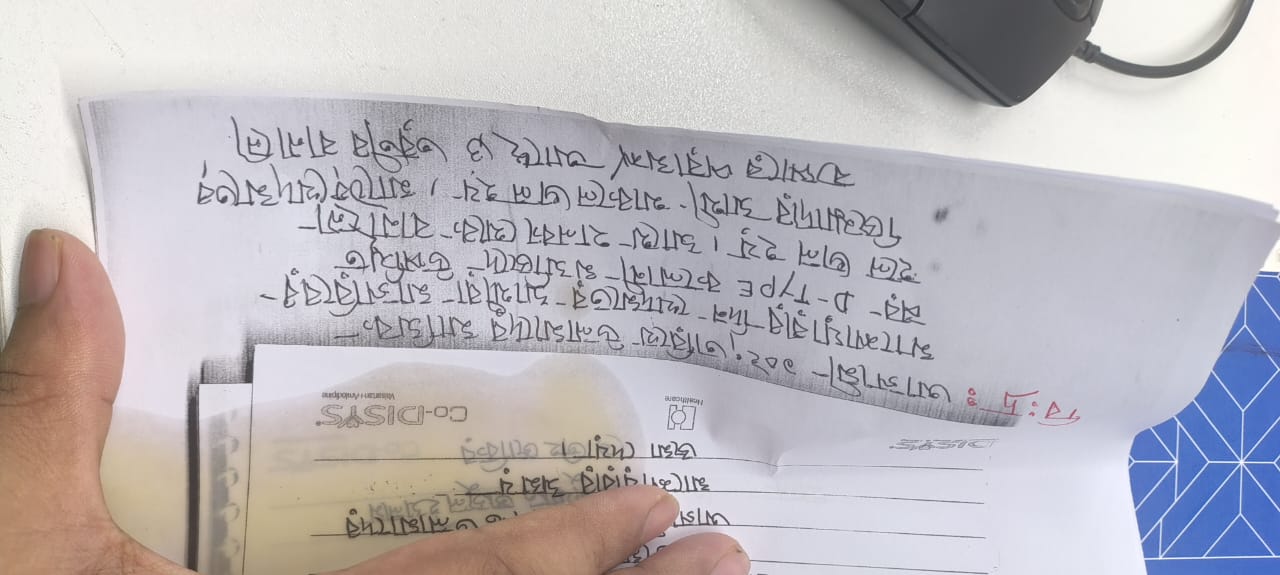 উলামাদের
মাশোয়ারার সময়
জমা দেয়া
জাকির
DISYS
Healthcare
Co-DISYS
Valsartan+Amlodipine
বি:দ্র: আগামী- ১০২; তারিখে উলামাদের মাসিক-
মাশোয়ারার-দিন- খেদমতের- সাথীরা- মাগরিবের-
পর- D-TYPE কলোনী- মসজিদে- উপস্থিত
হলে ভাল হয়। সাথে হালকা থেকে- বানানো-
জিম্মাদার সাথী- থাকলে ভাল হয়, মাঠের খেদমতের
ব্যপারে পরামর্শ আছে ও তরতীব বানানো